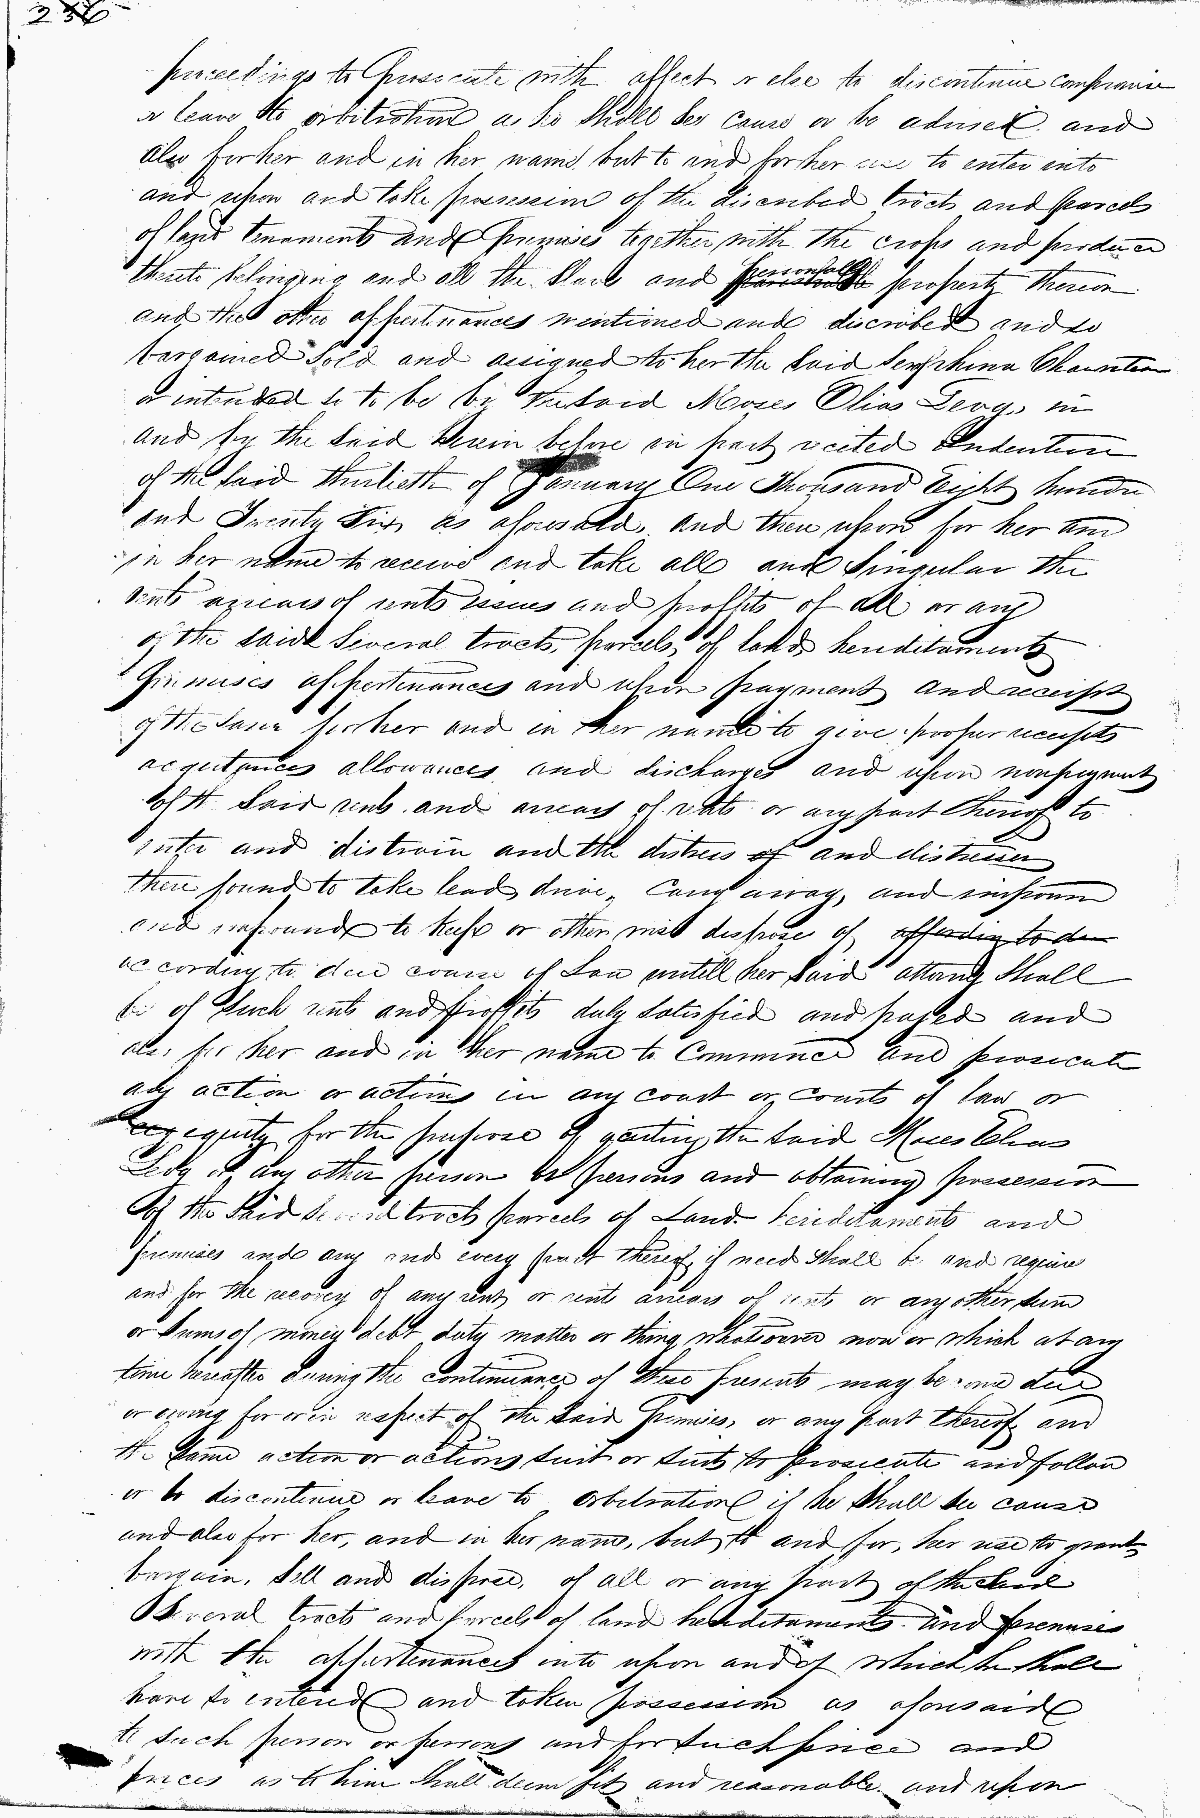 236
proceedings to Prosecute with affect or else to discontinue compromise
or leave to orbitration as he Shall See cause or be advised. and
also for her and in her name but to and for her use to enter into
and upon and take possession of the discribed tracts and parcels
of land tenaments and Premises together with the crops and produce
thereto belonging and all the Slaves and personal property thereon
and the other appertinances mentioned and discribed and so
bargained Sold and assigned to her the Said Seraphina Chauviteau
or intended so to be by the Said Moses Elias Levy, in
and by the Said herein before in part recited Indenture
of the Said thirtieth of January One Thousand Eight hundre
and Twenty Six as aforesaid. and there upon for her and
in her name to receive and take all and Singular the
rents arrears of rents issues and proffits of all or any
of the said Several tracts, parcels, of land, hereditaments
Primises appertinances and upon payment and receipt
of the Same for her and in her name to give proper receipts
acquitances allowances and discharges and upon nonpayment
of th Said rents and arrears of rents or any part thereof to
enter and distrain and the distress of and distresses
there found to take lead, drive, Carry away, and impound
and impounde to keep or other wise dispose of, affording to due
according to due course of Law untill her Said attorney Shall
be of Such rents and proffits duly satisfied and payed and
also for her and in her name to Commence and prosecute
any action or actions in any court or courts of law or
equity for the purpose of ejecting the Said Moses Elias
Levy or any other person or persons and obtaining possession
of the Said Several tracts parcels of Land hereditaments and
premises and any and every part thereof, if need Shall be and require
and for the recovery of any rent, or rents arrears of rents or any other sum
or Sums of money debt duty matter or thing whatsoever now or which at any
time hereafter during the continuance of these presents may become due
or owing for or in respect of the Said Premises, or any part thereof and
the Same action or actions suit or suits to prosecute and follow
or to discontinue or leave to orbitration if he Shall See cause
and also for her, and in her name, but to and for, her use to grant,
bargain, Sell and dispose, of all or any part of the Said
Several tracts and parcels of land hereditaments and premises
with the appurtenances into upon and of which he Shall
have so entered and taken possession as aforesaid
to such person or persons and for such price and
prices as to him Shall deem fit and reasonable and upon